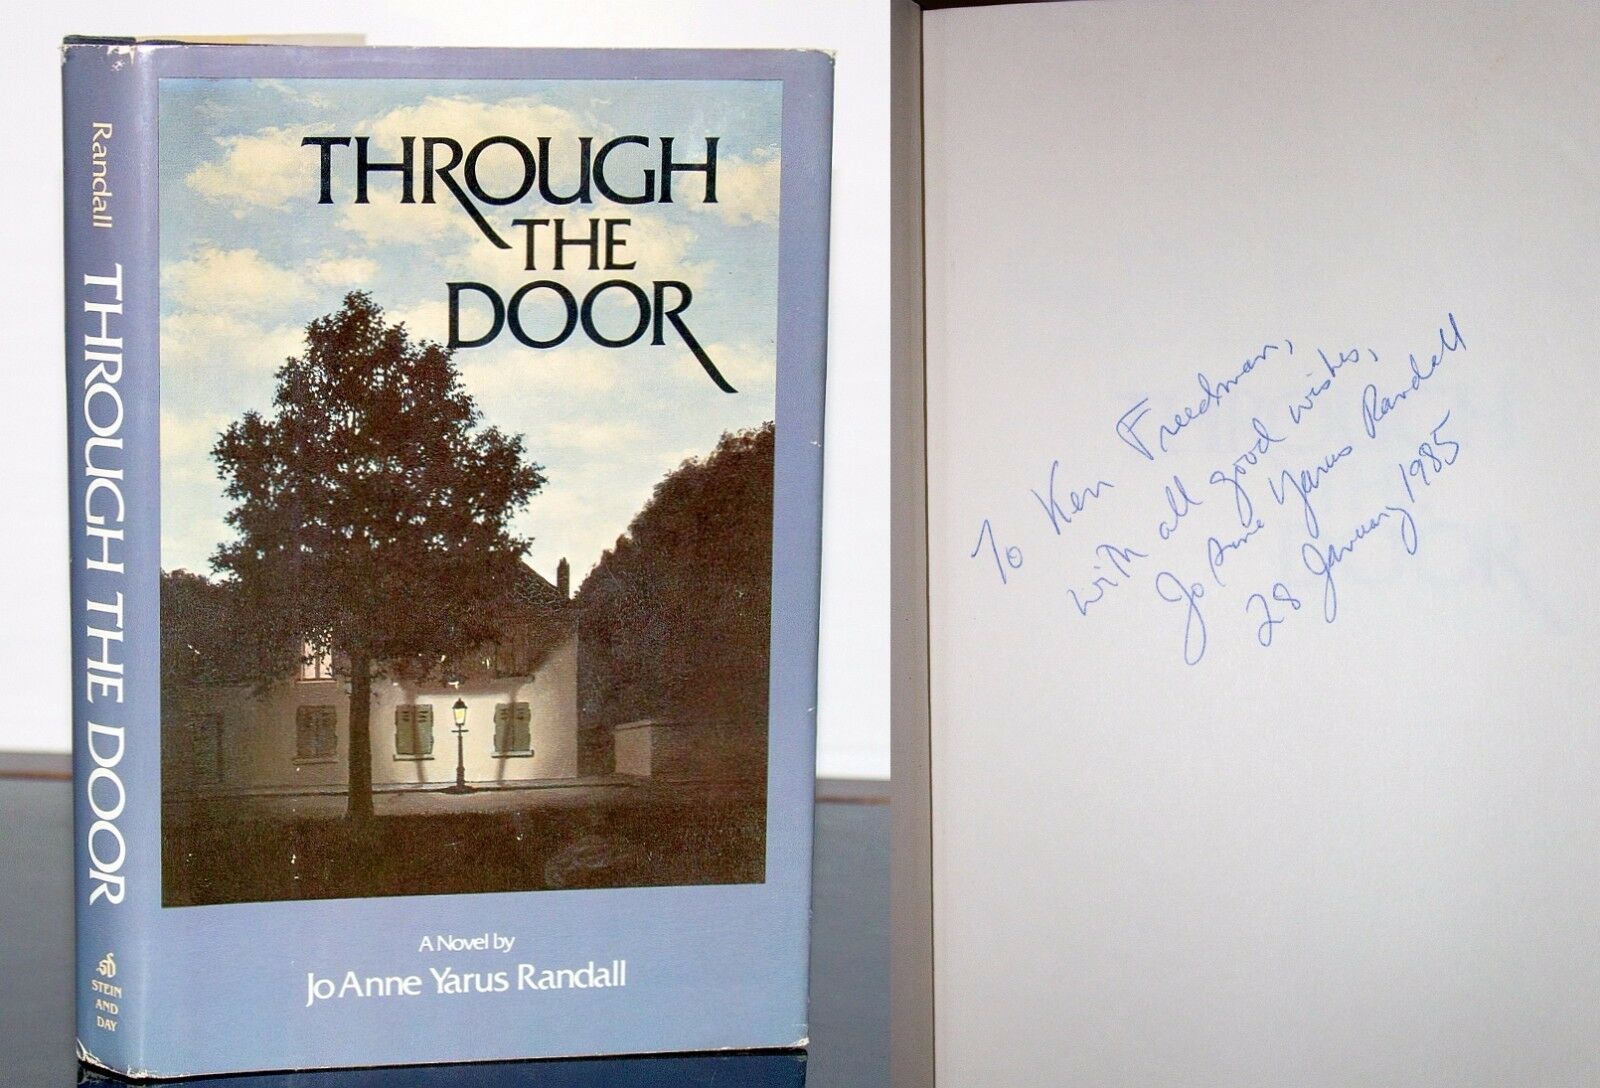 Randall
THROUGH THE DOOR
STEIN
AND
DAY
THROUGH
THE
DOOR
A Novel by
Jo Anne Yarus Randall
To Ken Freedman,
with all good wishes,
Jo Anne Yarus Randall
28 January 1985